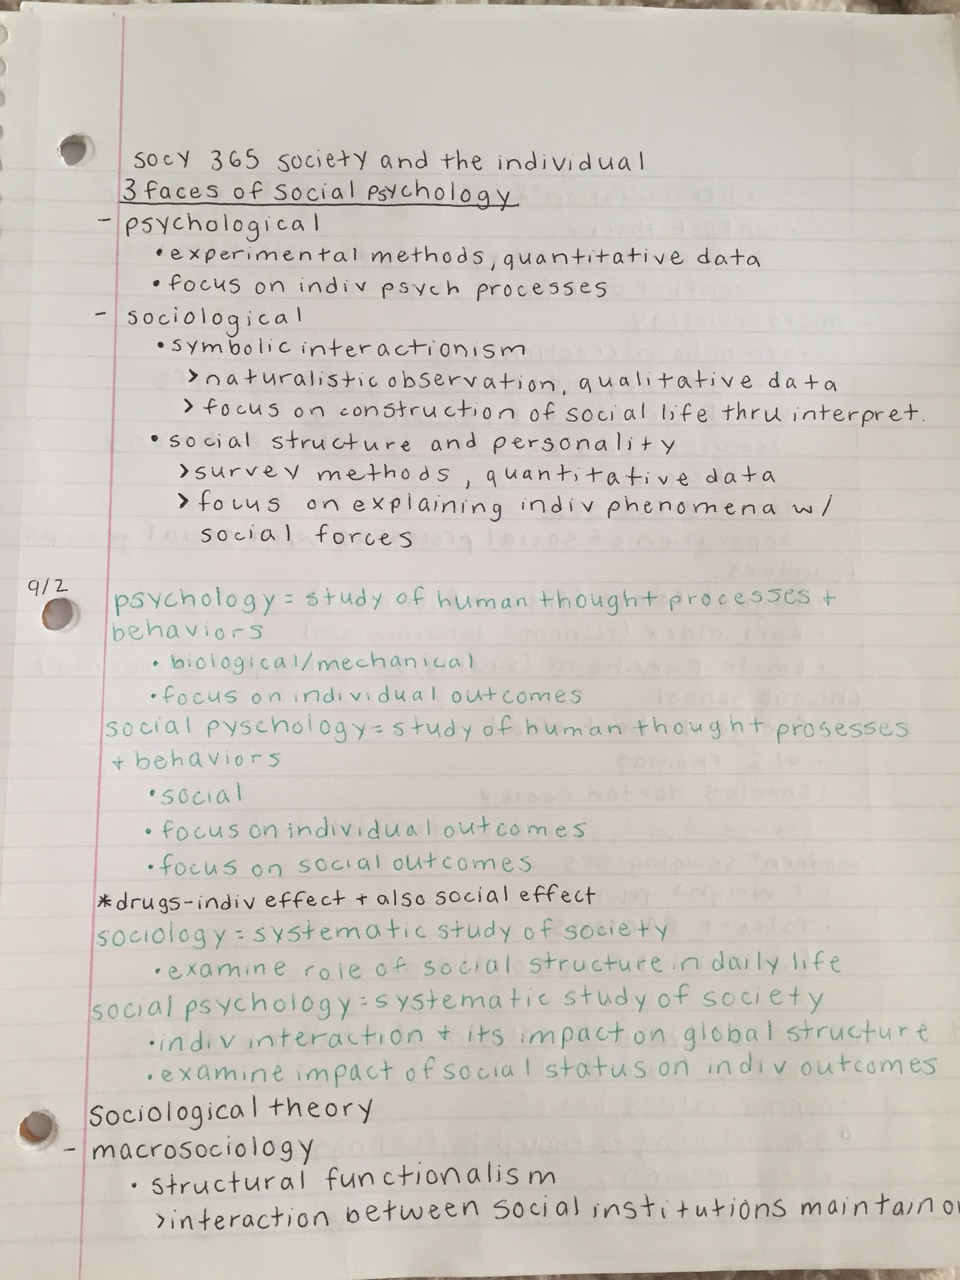 socy 365 society and the individual
3 faces of social psychology
- psychological
• experimental methods, quantitative data
• focus on indiv psych processes
- sociological
• symbolic interactionism
> naturalistic observation, qualitative data
> focus on construction of social life thru interpret.
• social structure and personality
> survey methods, quantitative data
> focus on explaining indiv phenomena w/
social forces
9/2
psychology = study of human thought processes +
behaviors
• biological/mechanical
• focus on individual outcomes
social pyschology = study of human thought prosesses
+ behaviors
• social
• focus on individual outcomes
• focus on social outcomes
* drugs - indiv effect + also social effect
sociology = systematic study of society
• examine role of social structure in daily life
social psychology = systematic study of society
• indiv interaction + its impact on global structure
• examine impact of social status on indiv outcomes
sociological theory
- macrosociology
• structural functionalism
> interaction between social institutions maintain